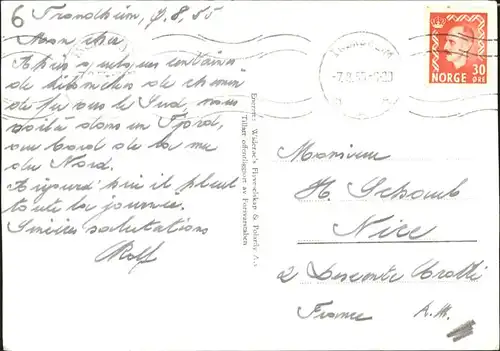 6 Trondheim, 7.8.55
Mon cher
Après quelques centaines
de kilomètres de chemin
de fer vers le Sud, nous
voilà dans un Fjord,
au bord de la mer
du Nord.
Aujourd'hui il pleut
toute la journée.
Sincères salutations
Rolf
Enerett: Widerøe's Flyveselskap & Polarfly A.s
Tillatt offentliggjort av Forsvarsstaben
-7.8.55
NORGE 30
ØRE
Monsieur
H. Schaub
Nice
2 Descente Crotti
France A.M.